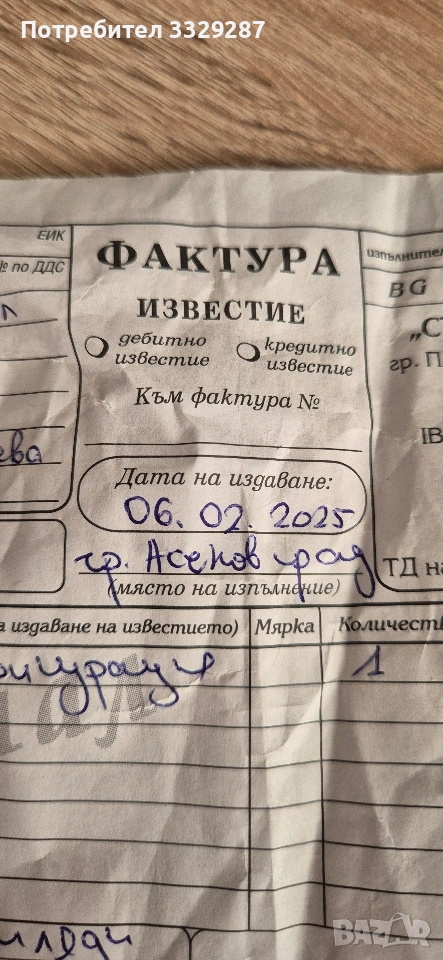 Потребител 3329287
ЕИК
ФАКТУРА
№ по ДДС
BG
ИЗВЕСТИЕ
дебитно известие
кредитно известие
гр. П
Към фактура №
IB
ева
Дата на издаване:
06.02.2025
гр. Асеновград
ТД на
(място на изпълнение)
а издаване на известието)
Мярка
Количеств
1
BAZAR